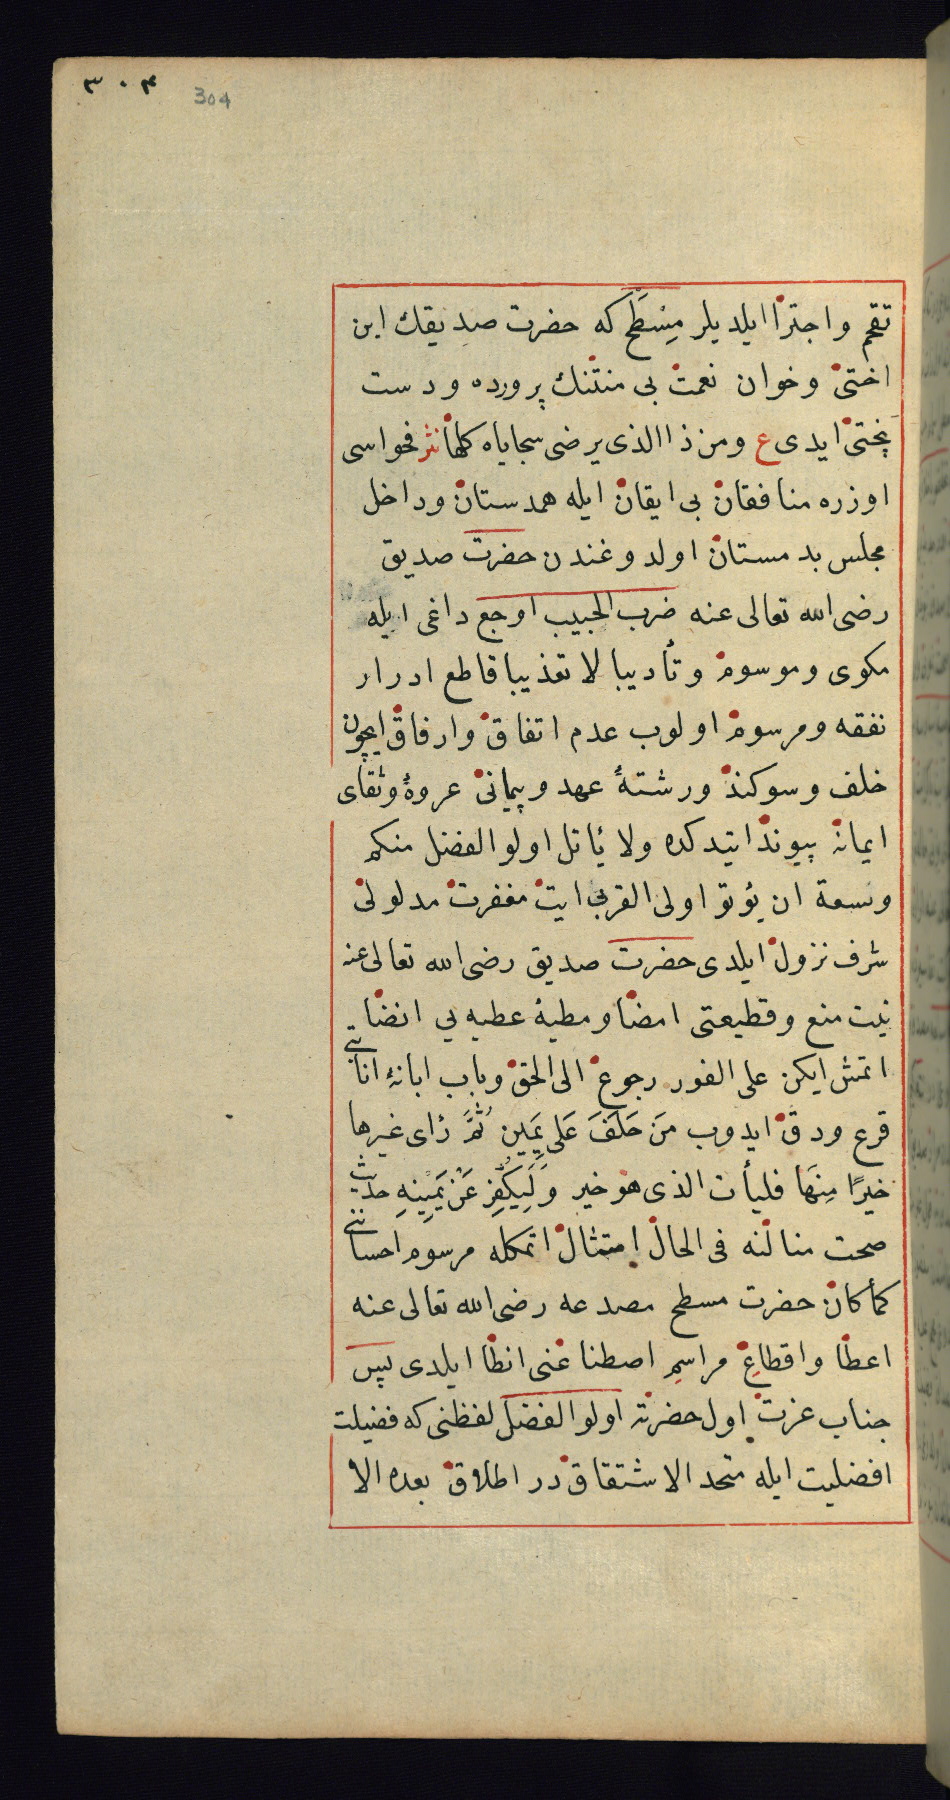 ٣٠۴
304
تقحم واجترا ایلدیلر مِسْطَح که حضرت صدیقك ابن
اختی وخوان نعمت بی منتنك پرورده ودست
پختی ایدی ع ومن ذا الذی یرضی سجایاه کلها نثر فحواسی
اوزره منافقان بی ایقان ایله همدستان وداخل
مجلس بدمستان اولدوغندن حضرت صدیق
رضی الله تعالی عنه ضرب الحبیب اوجع داغی ایله
مکوی وموسوم وتأدیبا لا تعذیبا قاطع ادرار
نفقه ومرسوم اولوب عدم اتفاق وارفاق ایچون
خلف وسوکند ورشتهٔ عهد وپیمانی عروهٔ وثقای
ایمانه پیوند ایتدکده ولا یأتل اولوا الفضل منکم
وسعة ان یؤتو اولی القربی ایت مغفرت مدلولی
شرف نزول ایلدی حضرت صدیق رضی الله تعالی عنه
نیت منع وقطیعتی امضا ومطیهٔ عطیه یی انضا
اتمش ایکن علی الفور رجوع الی الحق وباب ابانهٔ انابتی
قرع ودق ایدوب مَن حَلَفَ عَلی یَمِین ثُمَّ رَای غیرها
خیرًا مِنهَا فلیأت الذی هو خیر وَلیُکَفِّر عَنْ یَمِینِهِ حدیث
صحت منالنه فی الحال امتثال اتمکله مرسوم احساننی
کماکان حضرت مسطح مصدعه رضی الله تعالی عنه
اعطا واقطاعِ مراسمِ اصطناعنی انطا ایلدی پس
جناب عزت اول حضرته اولوا الفضل لفظنی که فضیلت
افضلیت ایله متحد الاشتقاق در اطلاق بعده الا